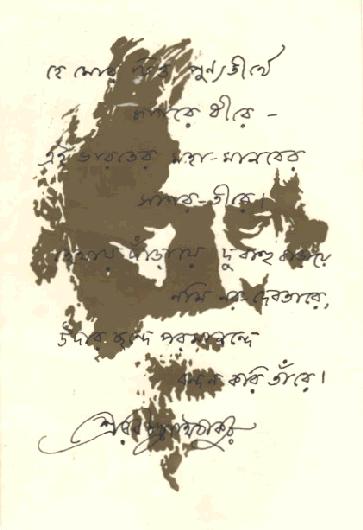 হে মোর চিত্ত পুণ্যতীর্থে
জাগোরে ধীরে -
এই ভারতের মহা-মানবের
সাগর-তীরে।
হেথায় দাঁড়ায়ে দুবাহু বাড়ায়ে
নমি নর-দেবতারে,
উদার ছন্দে পরমানন্দে
বন্দন করি তাঁরে।
শ্রীরবীন্দ্রনাথ ঠাকুর